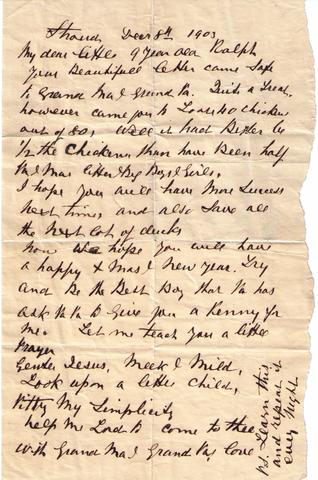 Stroud Decr 8th 1903
My dear little 9 year old Ralph
Your Beautifull letter came Safe
to Grand Ma & Grand Pa. Quite a Treat,
however came you to Loose 40 chicken
out of 80, Well it had Better be
1/2 the Chickens than have been half
Pa & Mas little Big Boys & Girls,
I hope you will have More Success
Next time, and also Save all
the Next lot of ducks
Now We hope you will have
a happy Xmas & New Year. Try
and Be the Best Boy that Pa has
ask Pa to Give you a Penny for
Me. Let me teach you a little
Prayer
Gentle Jesus, Meek & Mild,
Look upon a little Child,
Pitty My Simplicity
help Me Lord to come to thee
With Grand Ma & Grand Pas, love
PS. Learn this
and repeat it
every Night